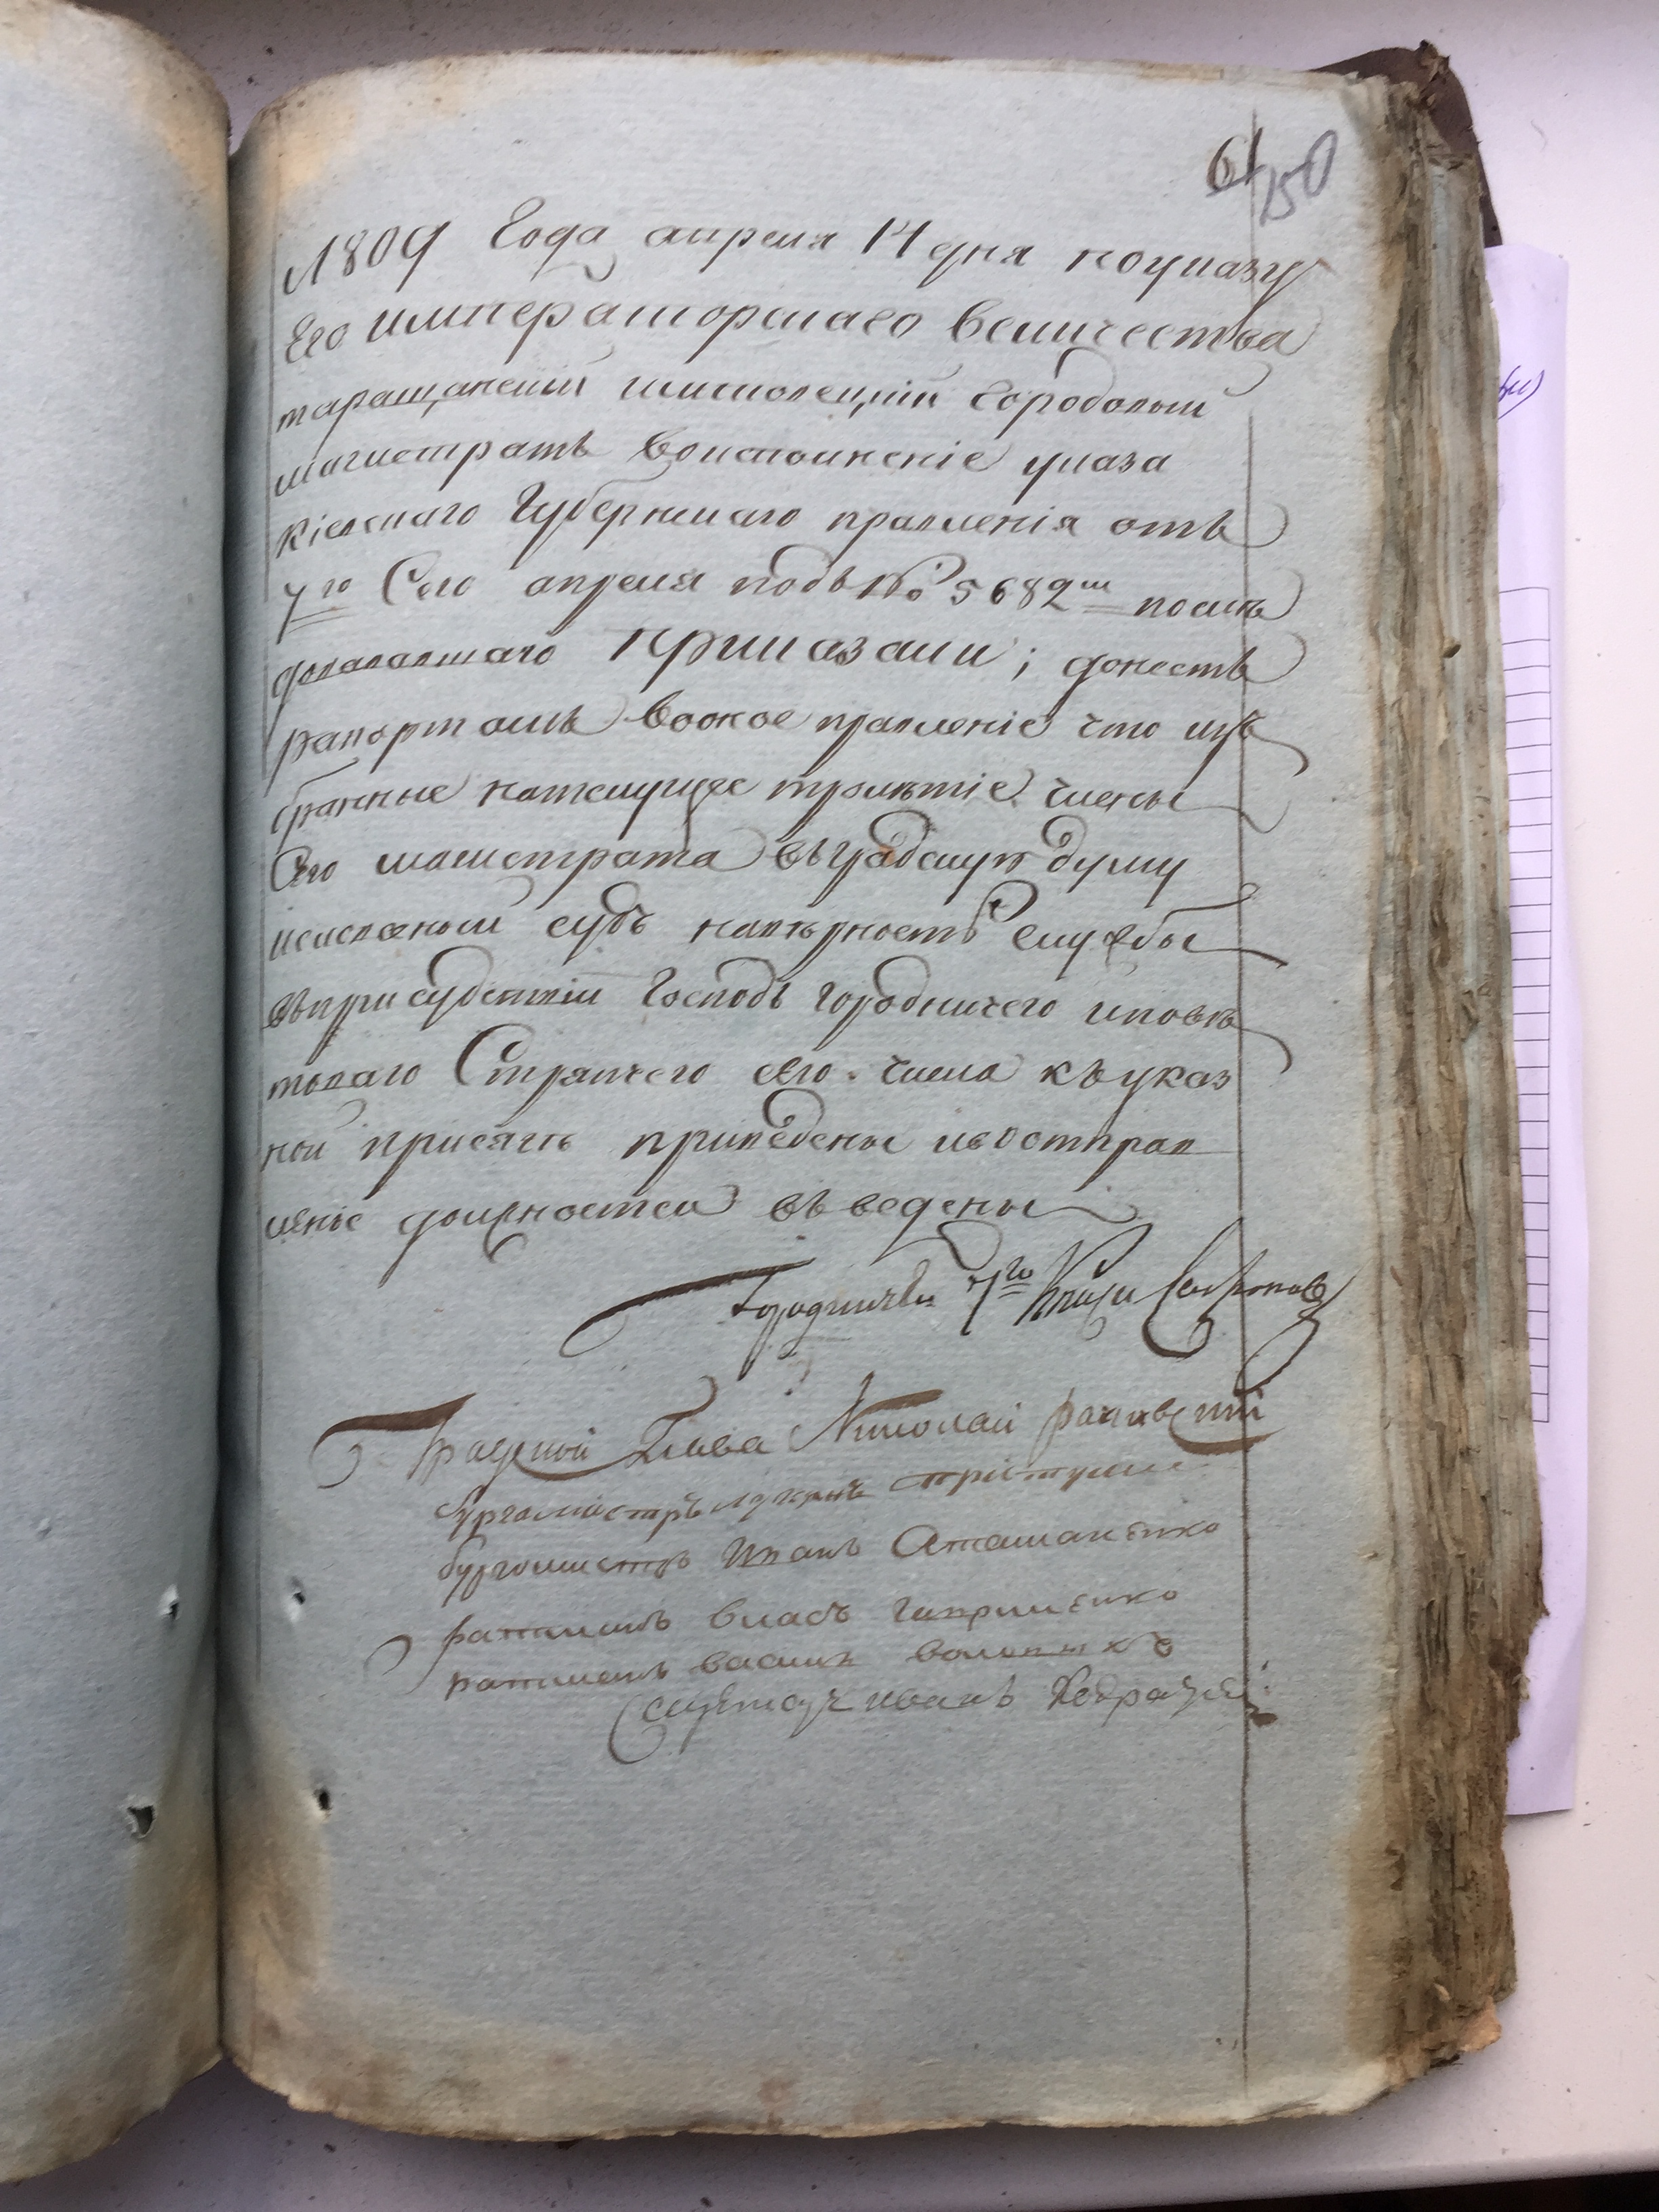 61 150
1809 Года апреля 14 дня поуказу
Его императорскаго величества
таращанский шистолецкий городовый
магистратъ воисполнение указа
Кіевскаго Губернскаго правленія отъ
7го Сего апреля подъ № 5682м после
довавшаго приказали; донесть
рапортомъ воокое правленіе что изъ
бранные натекущее трилѣтіе члены
Сего магистрата въ градскую думу
исисловный судъ навѣрность Службы
въприсудствіи Господъ городничего иповѣ
товаго Стряпчего сего числа къуказ
ной присягѣ приведены ивотправ
леніе должностей въведены
Городничей 7го
Градской Глава Николай
бургомистръ
бургомистръ Иванъ Атаманенко
ратманъ Власъ Гаврилѣнко
ратманъ василь
иванъ